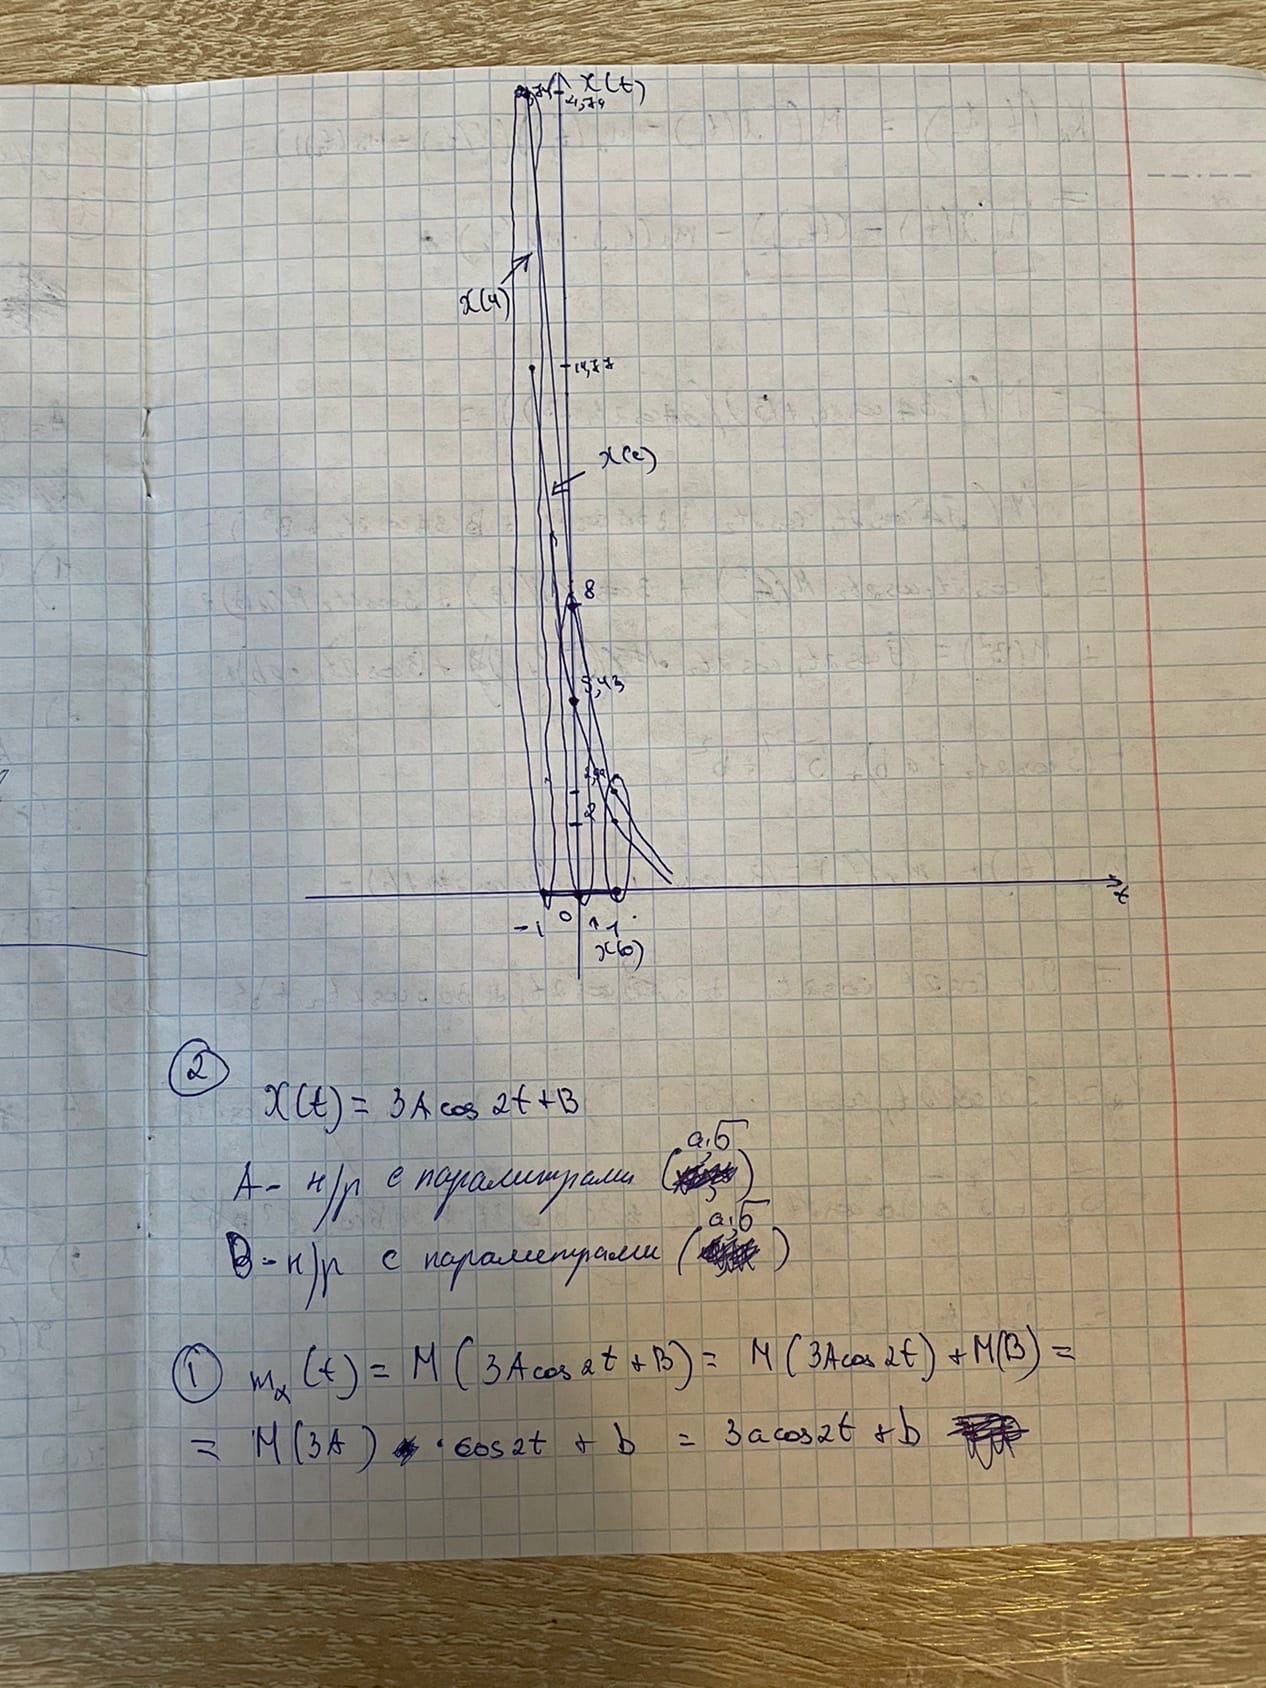 x(t)
21,74
x(4)
14,77
x(2)
8
5,43
2
-1 0 1 t
x(0)
2
X(t) = 3A cos 2t + B
a, σ
A - н/р с параметрами ( )
a, σ
B - н/р с параметрами ( )
1 mₓ(t) = M(3A cos 2t + B) = M(3A cos 2t) + M(B) =
= M(3A) · cos 2t + b = 3a cos 2t + b